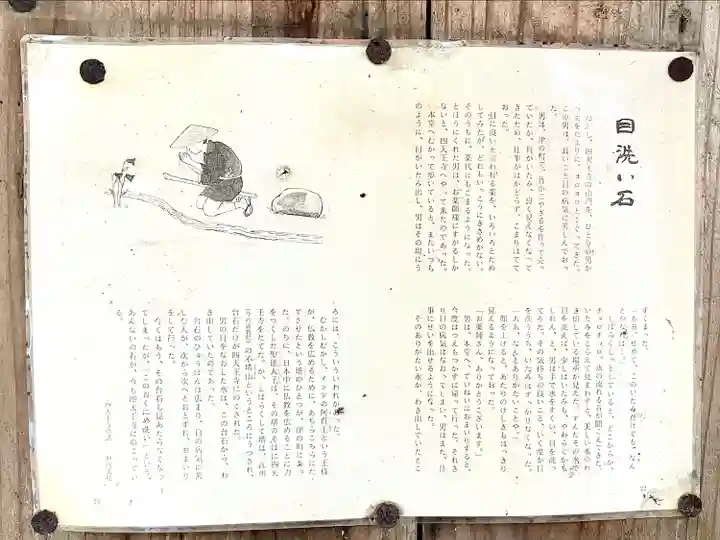 目洗い石
むかし、四天王寺の山門を、ひとりの男が
つえをたよりに、ヨロヨロとくぐってきた。
この男は、長いこと目の病気に苦しんでおっ
た。
男は、津の町で、
ていたが、目がいたみ、良く見えなくなって
きたため、仕事がはかどらず、こまりはてて
おった。
目に良いと言われる薬を、いろいろとため
してみたが、どれもいっこうにききめがない。
そのうちに、薬代にもこまるようになった。
とほうにくれた男は、お薬師様にすがるしか
ないと、四天王寺へやって来たのであった。
本堂へむかって歩いていると、またいつも
のように、目がいたみ出し、男はその場にう
ずくまった。
「ああ、せめて、このいたみだけでも、なん
とかならぬ
しばらくじっとしていると、どこからか、
チョロチョロ、水の流れる音が聞こえてきた。
いたみをこらえて、さがすと、美しい水のわ
き出している場所が見えた。すんだその水で
目を洗えば、少しはいたみも、やわらぐかも
しれん、と、男は手で水をすくい、目を洗っ
てみた。その気持ちの良いこと。いく度か目
を洗ううち、いたみはすっかりなくなった。
「ああ、なんとありがたいことや。」
顔をあげると、あたりのけしきもはっきり
見えるようになっておった。
「お薬師さん、ありがとうございます。」
男は、本堂へ、ていねいにおまいりすると、
今度はつえもつかずに帰って行った。それき
り目の病気はなおってしまい、男はまた、仕
事にせいを出せるようになった。
そのありがたい水が、わき出していたとこ
ろには、こういういわれがあった。
むかしむかし、インドの阿育王という王様
が、仏教を広めるために、あちらこちらにた
てさせたという塔のひとつが、津の町にあっ
た。のちに、日本中に仏教を広めることに力
をつくした聖徳太王は、その塔のそばに四天
王寺をたてた。が、しばらくして塔は、
の不塔山というところにうつされ、
台石だけが四天王寺にのこされた。
男の目をなおした水は、この台石から、わ
き出していたのであった。
台石のひょうばんは広まり、目の病気に苦
しむ人が、次から次へとおとずれ、おまいり
をして行った。
今ではもう、その台石も見あたらなくなっ
てしまったが、「このおくにめ洗い」という、
あんないの石が、今も四天王寺にのこってい
る。